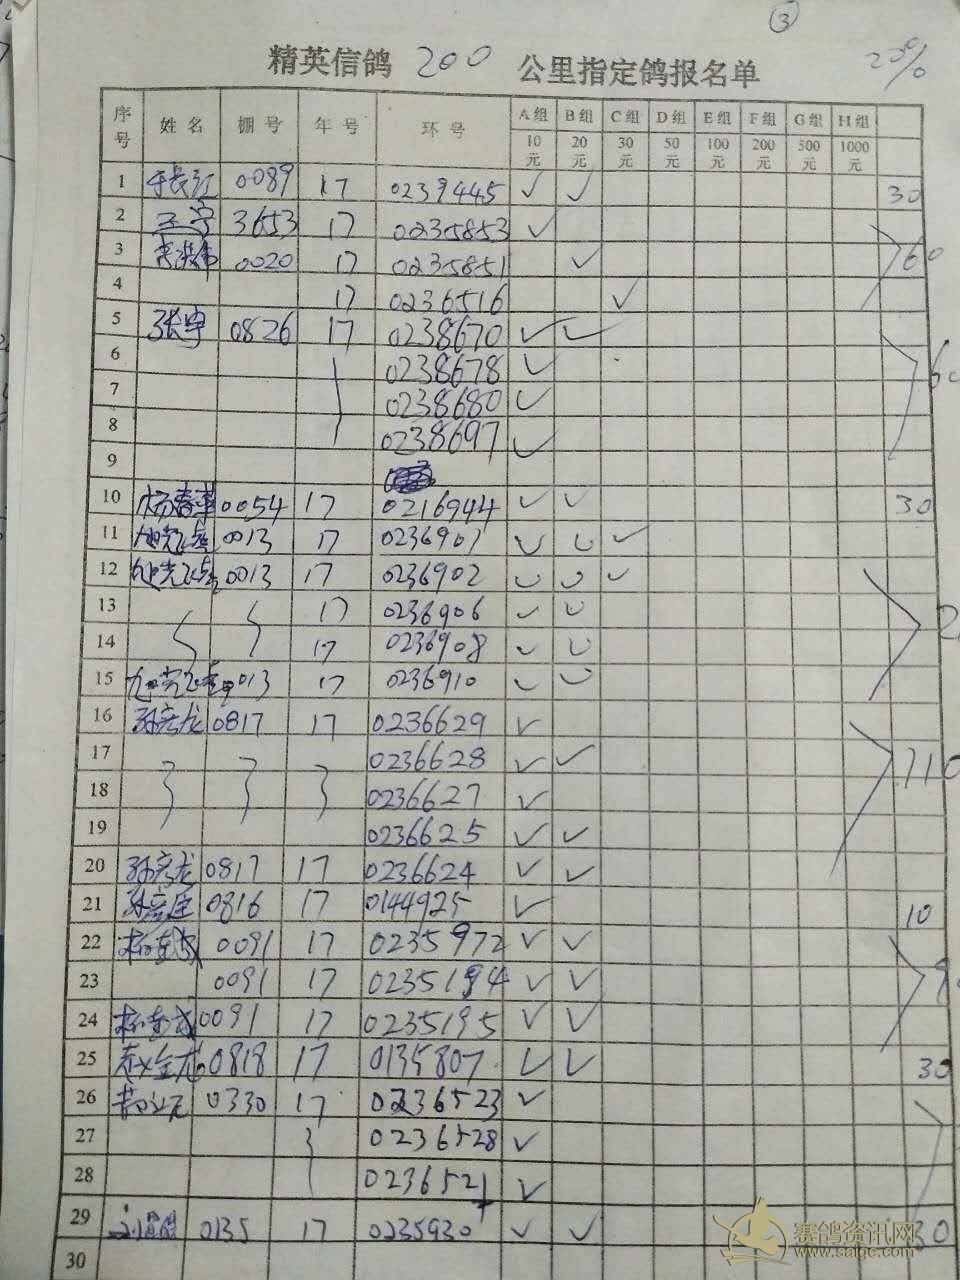 ③
精英信鸽 200 公里指定鸽报名单 20%
序号 姓名 棚号 年号 环号 A组 10元 B组 20元 C组 30元 D组 50元 E组 100元 F组 200元 G组 500元 H组 1000元
1 于长江 0089 17 0239445 ✓ ✓ 30
2 王宇 3653 17 0235853 ✓
3 0020 17 0235851 ✓ 60
4 17 0236516 ✓
5 张宇 0826 17 0238670 ✓ ✓
6 0238678 ✓
7 0238680 ✓
8 0238697 ✓
9
10 杨春革 0054 17 0216944 ✓ ✓ 30
11 0013 17 0236901 ✓ ✓ ✓
12 0013 17 0236902 ✓ ✓ ✓
13 17 0236906 ✓ ✓
14 17 0236908 ✓ ✓
15 0013 17 0236910 ✓ ✓
16 孙彦龙 0817 17 0236629 ✓
17 0236628 ✓ ✓ 110
18 0236627 ✓
19 0236625 ✓ ✓
20 孙彦龙 0817 17 0236624 ✓ ✓
21 0816 17 0144925 ✓ 10
22 0091 17 0235972 ✓ ✓
23 0091 17 0235194 ✓ ✓
24 0091 17 0235195 ✓ ✓
25 赵金龙 0818 17 0135807 ✓ ✓ 30
26 0330 17 0236523 ✓
27 0236528 ✓
28 0236521 ✓
29 0135 17 0235930 ✓ ✓ 30
30
赛鸽资讯网
www.saigc.com